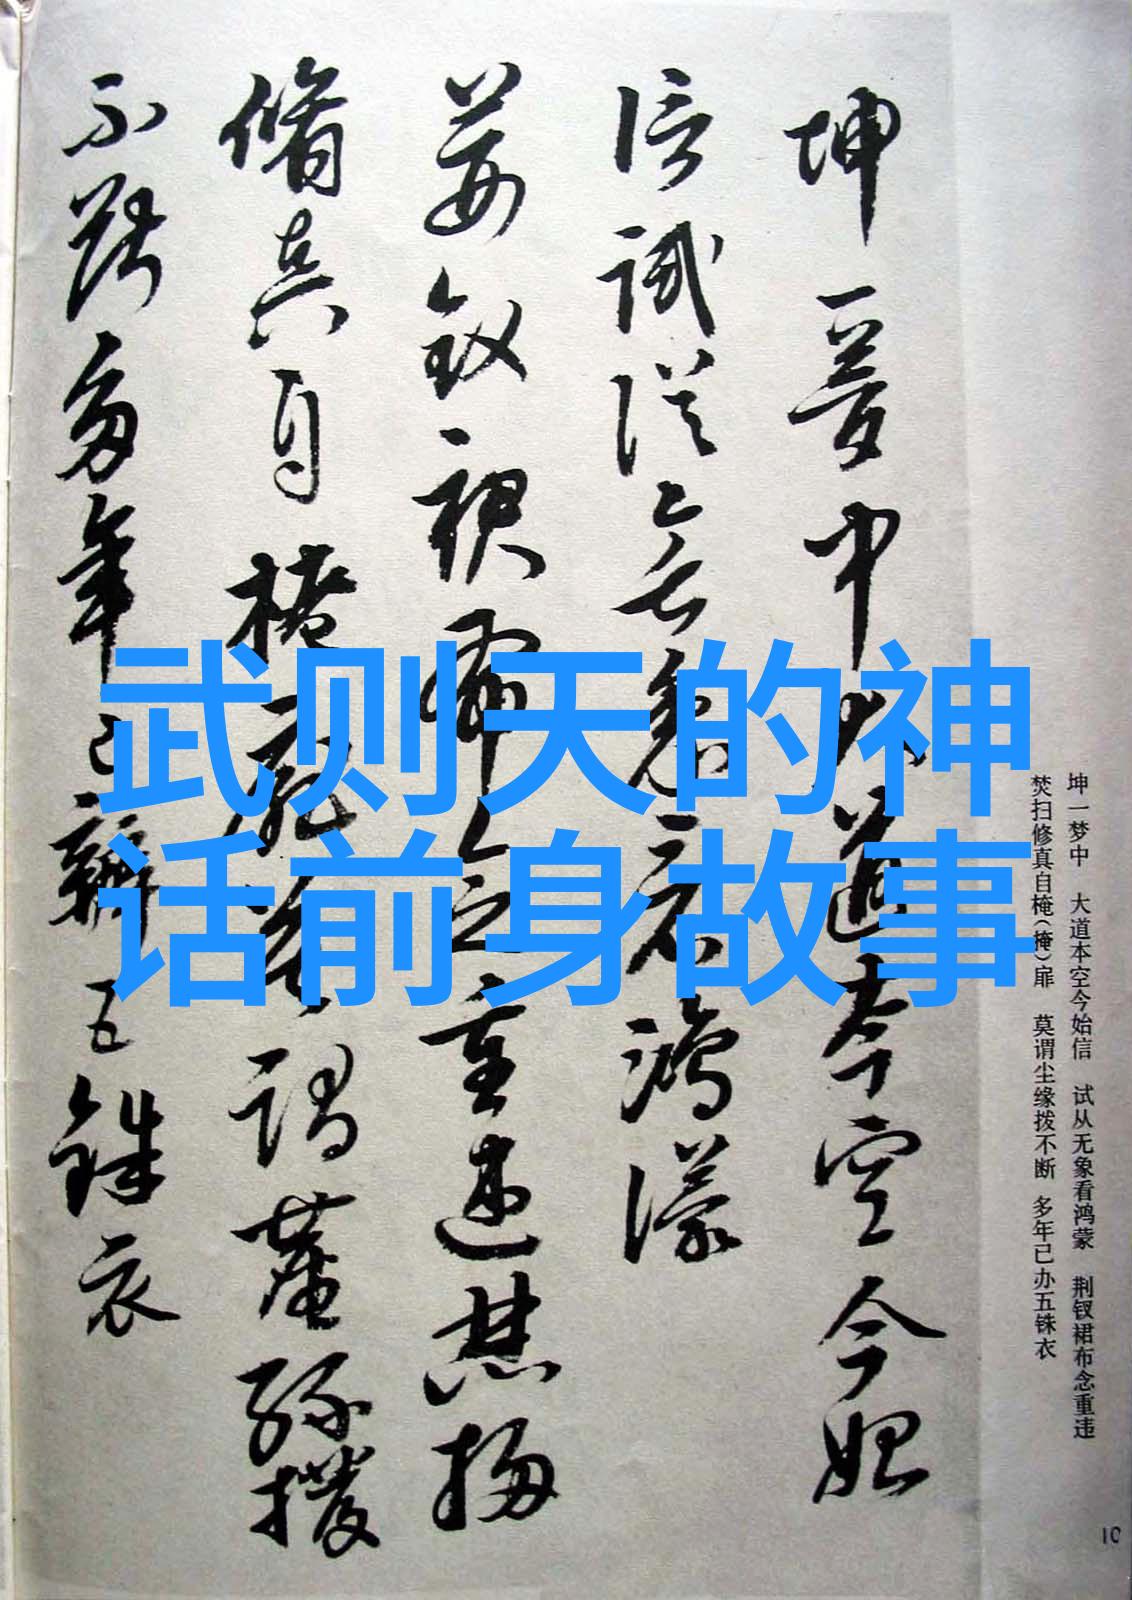 武则天的神
话前身故事
坤一梦中 大道本空今始
信试从无象看鸿濛
荆钗裙布念重违焚扫
修真自掩扉莫谓尘缘拨
不断多年已办五铢衣
坤一梦中 大道本空今始信 试从无象看鸿蒙 荆钗裙布念重违
焚扫修真自掩(掩)扉 莫谓尘缘拨不断 多年已办五铢衣
10